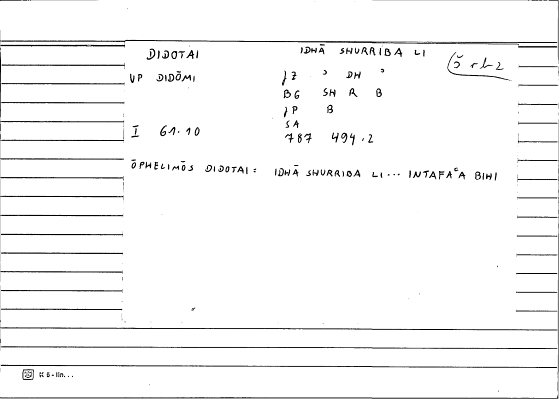 DIDOTAI IDHĀ SHURRIBA LI
VP DIDŌMI JZ ' DH '
BG SH R B
JP B
SA
I 61.10 787 494.2
ŌPHELIMŌS DIDOTAI: IDHĀ SHURRIBA LI... INTAFAʿA BIHI